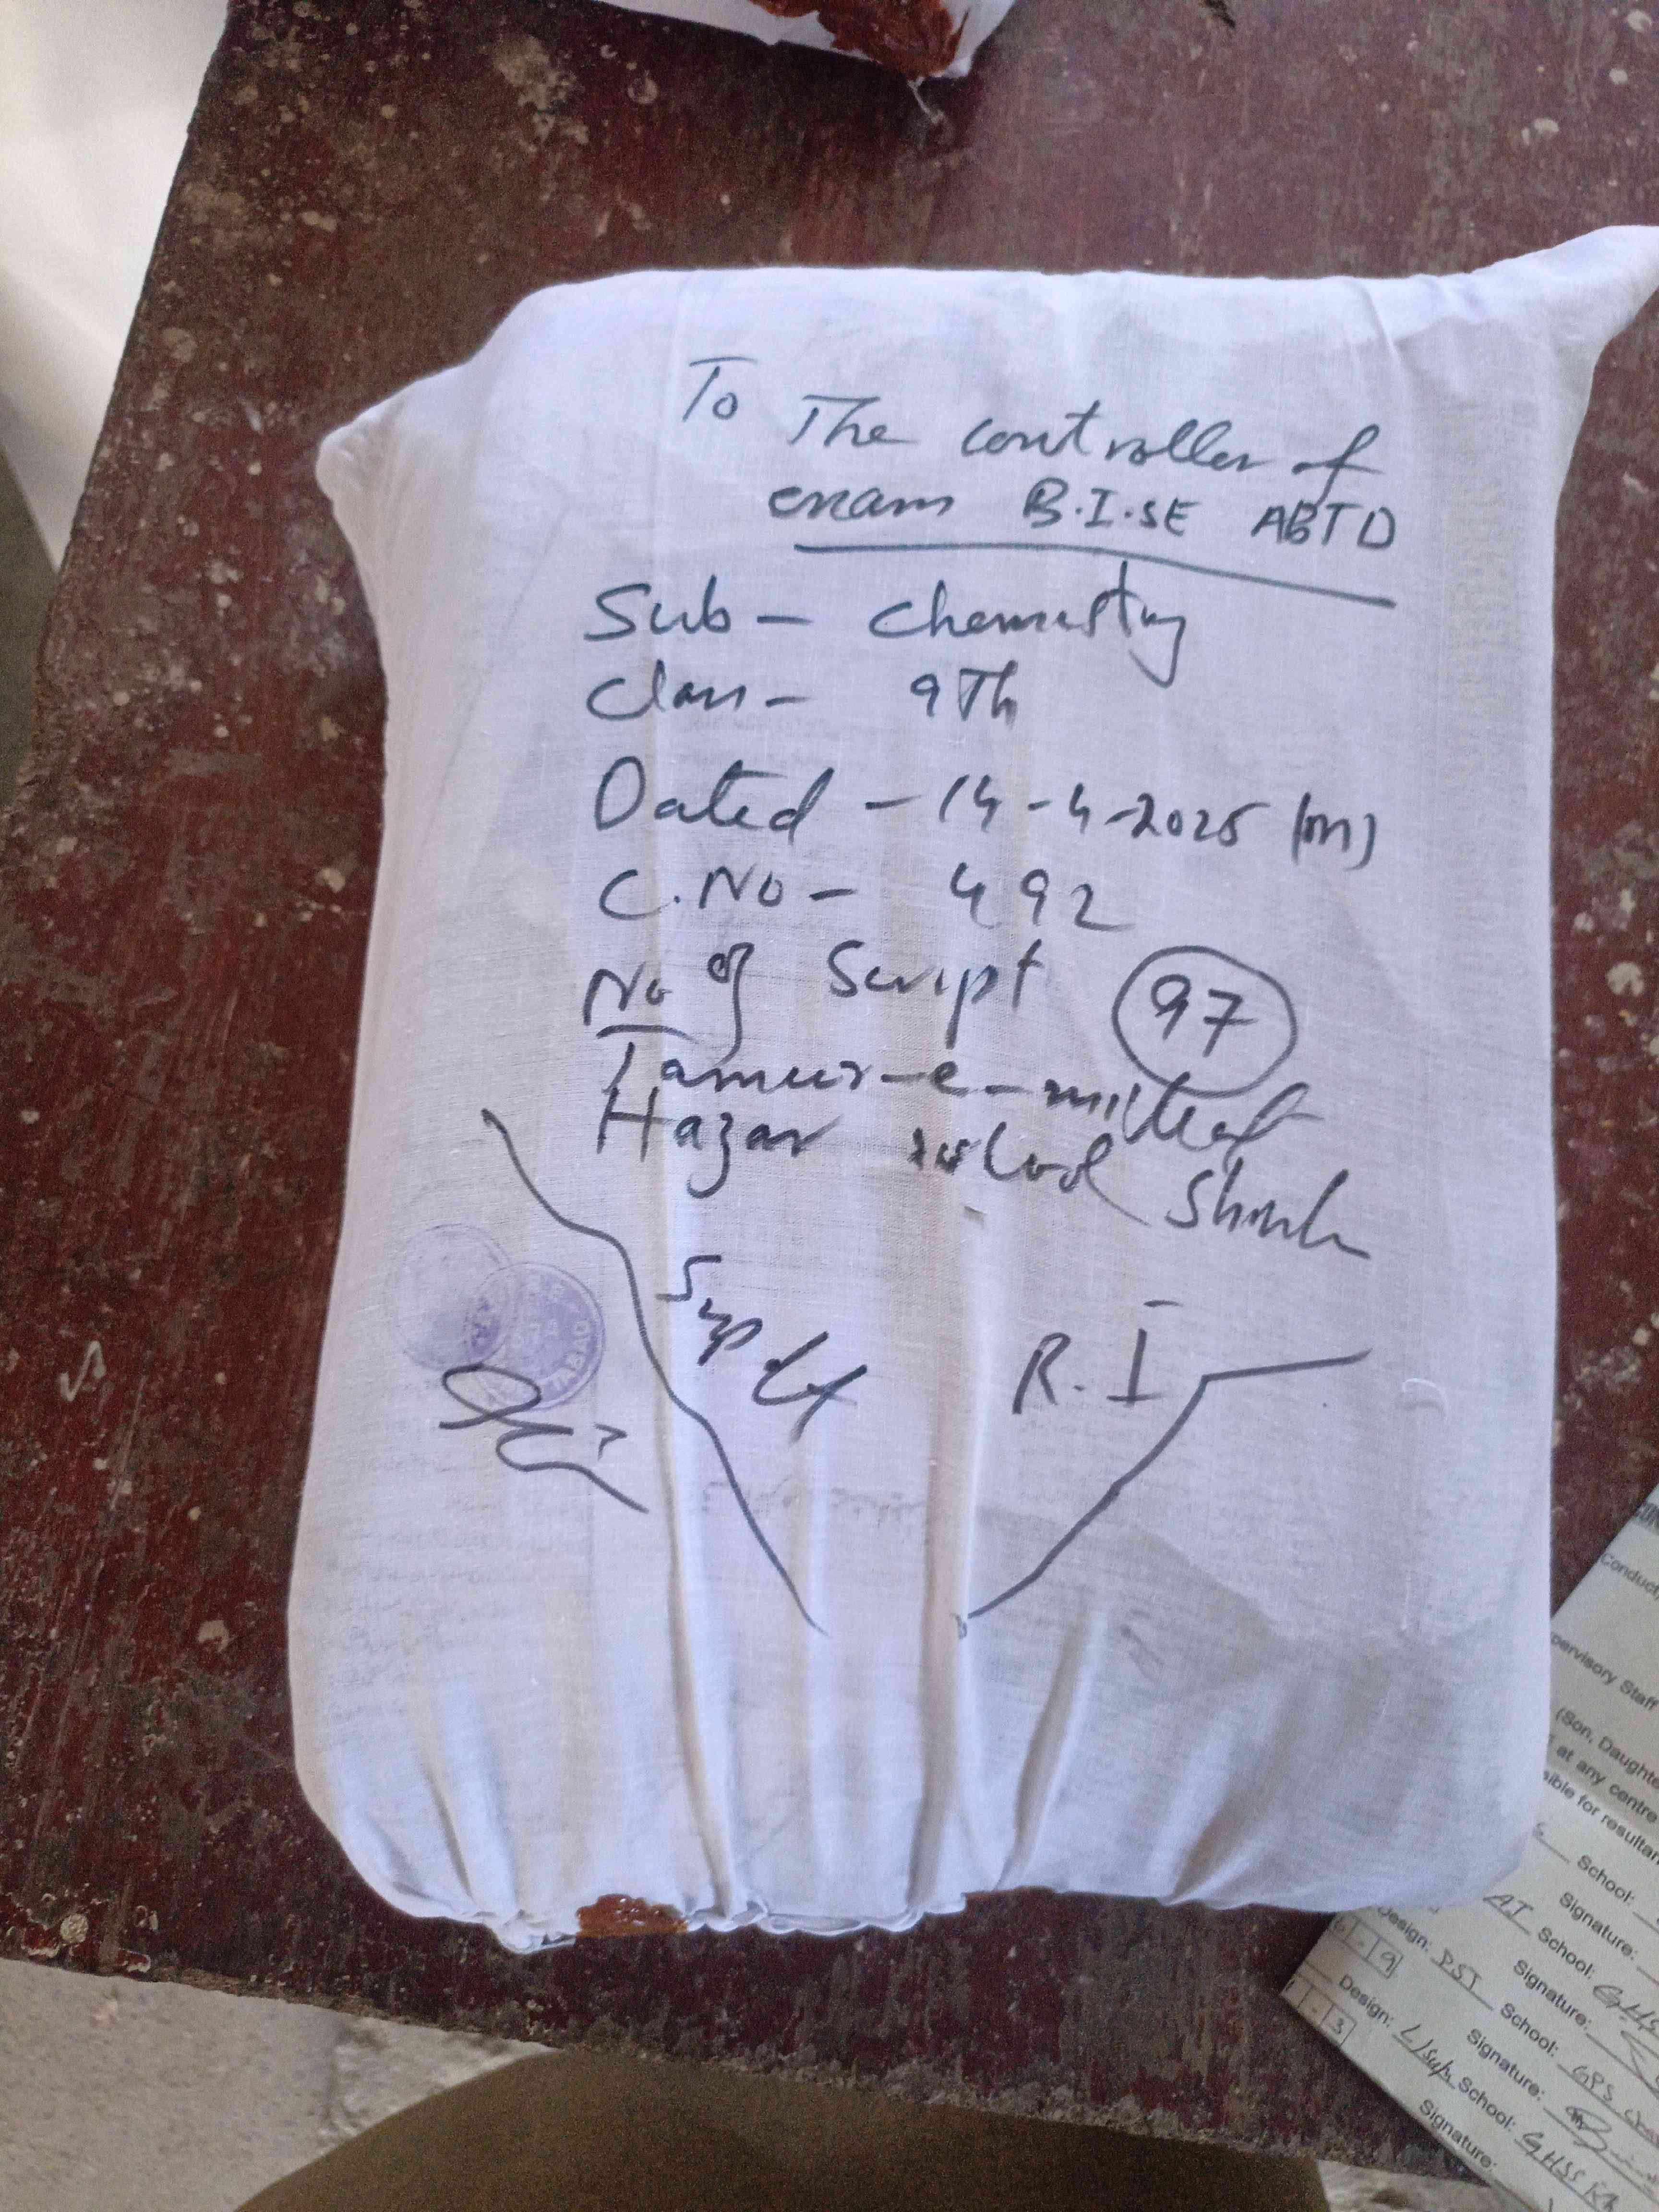 To The controller of
exam B.I.SE ABTD
Sub - Chemistry
Class - 9Th
Dated - 14-4-2025 (M)
C.No - 492
No of Script 97
Tameer-e-millat
Hazar
Supdt
R.I
Conduct
pervisory Staff
(Son, Daughte
at any centre
sible for resultan
School:
Signature:
AT School: GHS
Signature:
Design: PST School: GPS
Signature:
Design: School: GHSS
Signature: